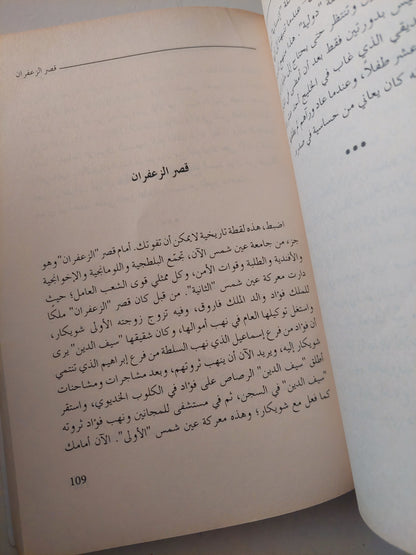 قصر الزعفران
قصر الزعفران
اضبط، هذه لقطة تاريخية لايمكن أن تفوتك. أمام قصر "الزعفران" وهو
جزء من جامعة عين شمس الآن، تجمّع البلطجية واللومانجية والإخوانجية
والأفندية والطلبة وقوات الأمن، وكل ممثلي قوى الشعب العامل؛ حيث
دارت معركة عين شمس "الثانية". من قبل كان قصر "الزعفران" ملكًا
للملك فؤاد والد الملك فاروق، وفيه تزوج زوجته الأولى شويكار،
واستغل توكيلها العام في نهب أموالها، وكان شقيقها "سيف الدين" يرى
أن فؤاد من فرع إسماعيل الذي نهب السلطة من فرع إبراهيم الذي تنتمي
شويكار إليه، ويريد الآن أن ينهب ثروتهم، وبعد مشاجرات ومشاحنات
أطلق "سيف الدين" الرصاص على فؤاد في الكلوب الخديوي، واستقر
"سيف الدين" في السجن، ثم في مستشفى للمجانين ونهب فؤاد ثروته
كما فعل مع شويكار؛ وهذه معركة عين شمس "الأولى". الآن أمامك
109
"دولية".
وتنتظر حتى
بدورتين فقط بعد أن
الذي غاب في الخليج
طفلاً، وعندما عاد ورآهم
كان يعاني من حساسية في
***